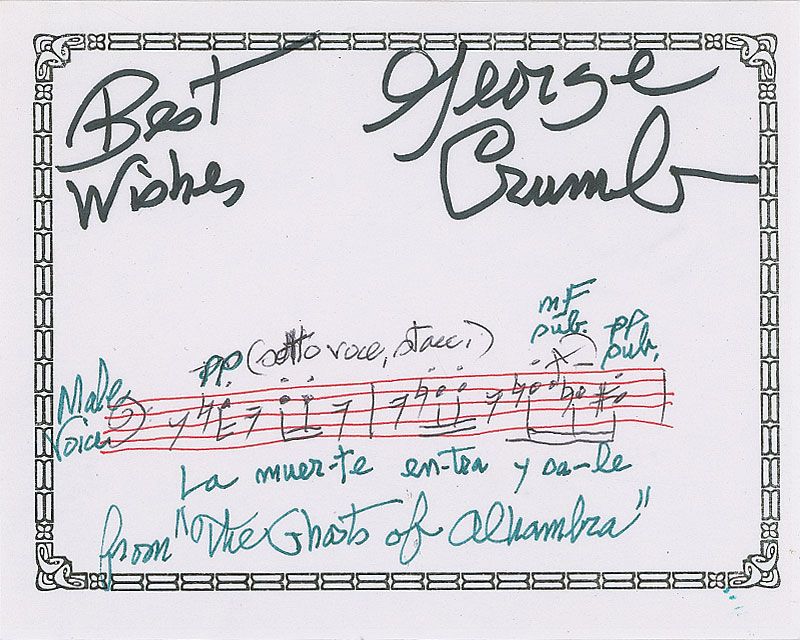 Best
Wishes
George
Crumb
mF
sub.
pp
sub.
pp (sotto voce, stacc.)
Male
Voice
La muer-te en-tra y sa-le
from "The Ghosts of Alhambra"